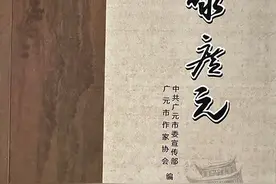 广元
中共广元市委宣传部
广元市作家协会
编